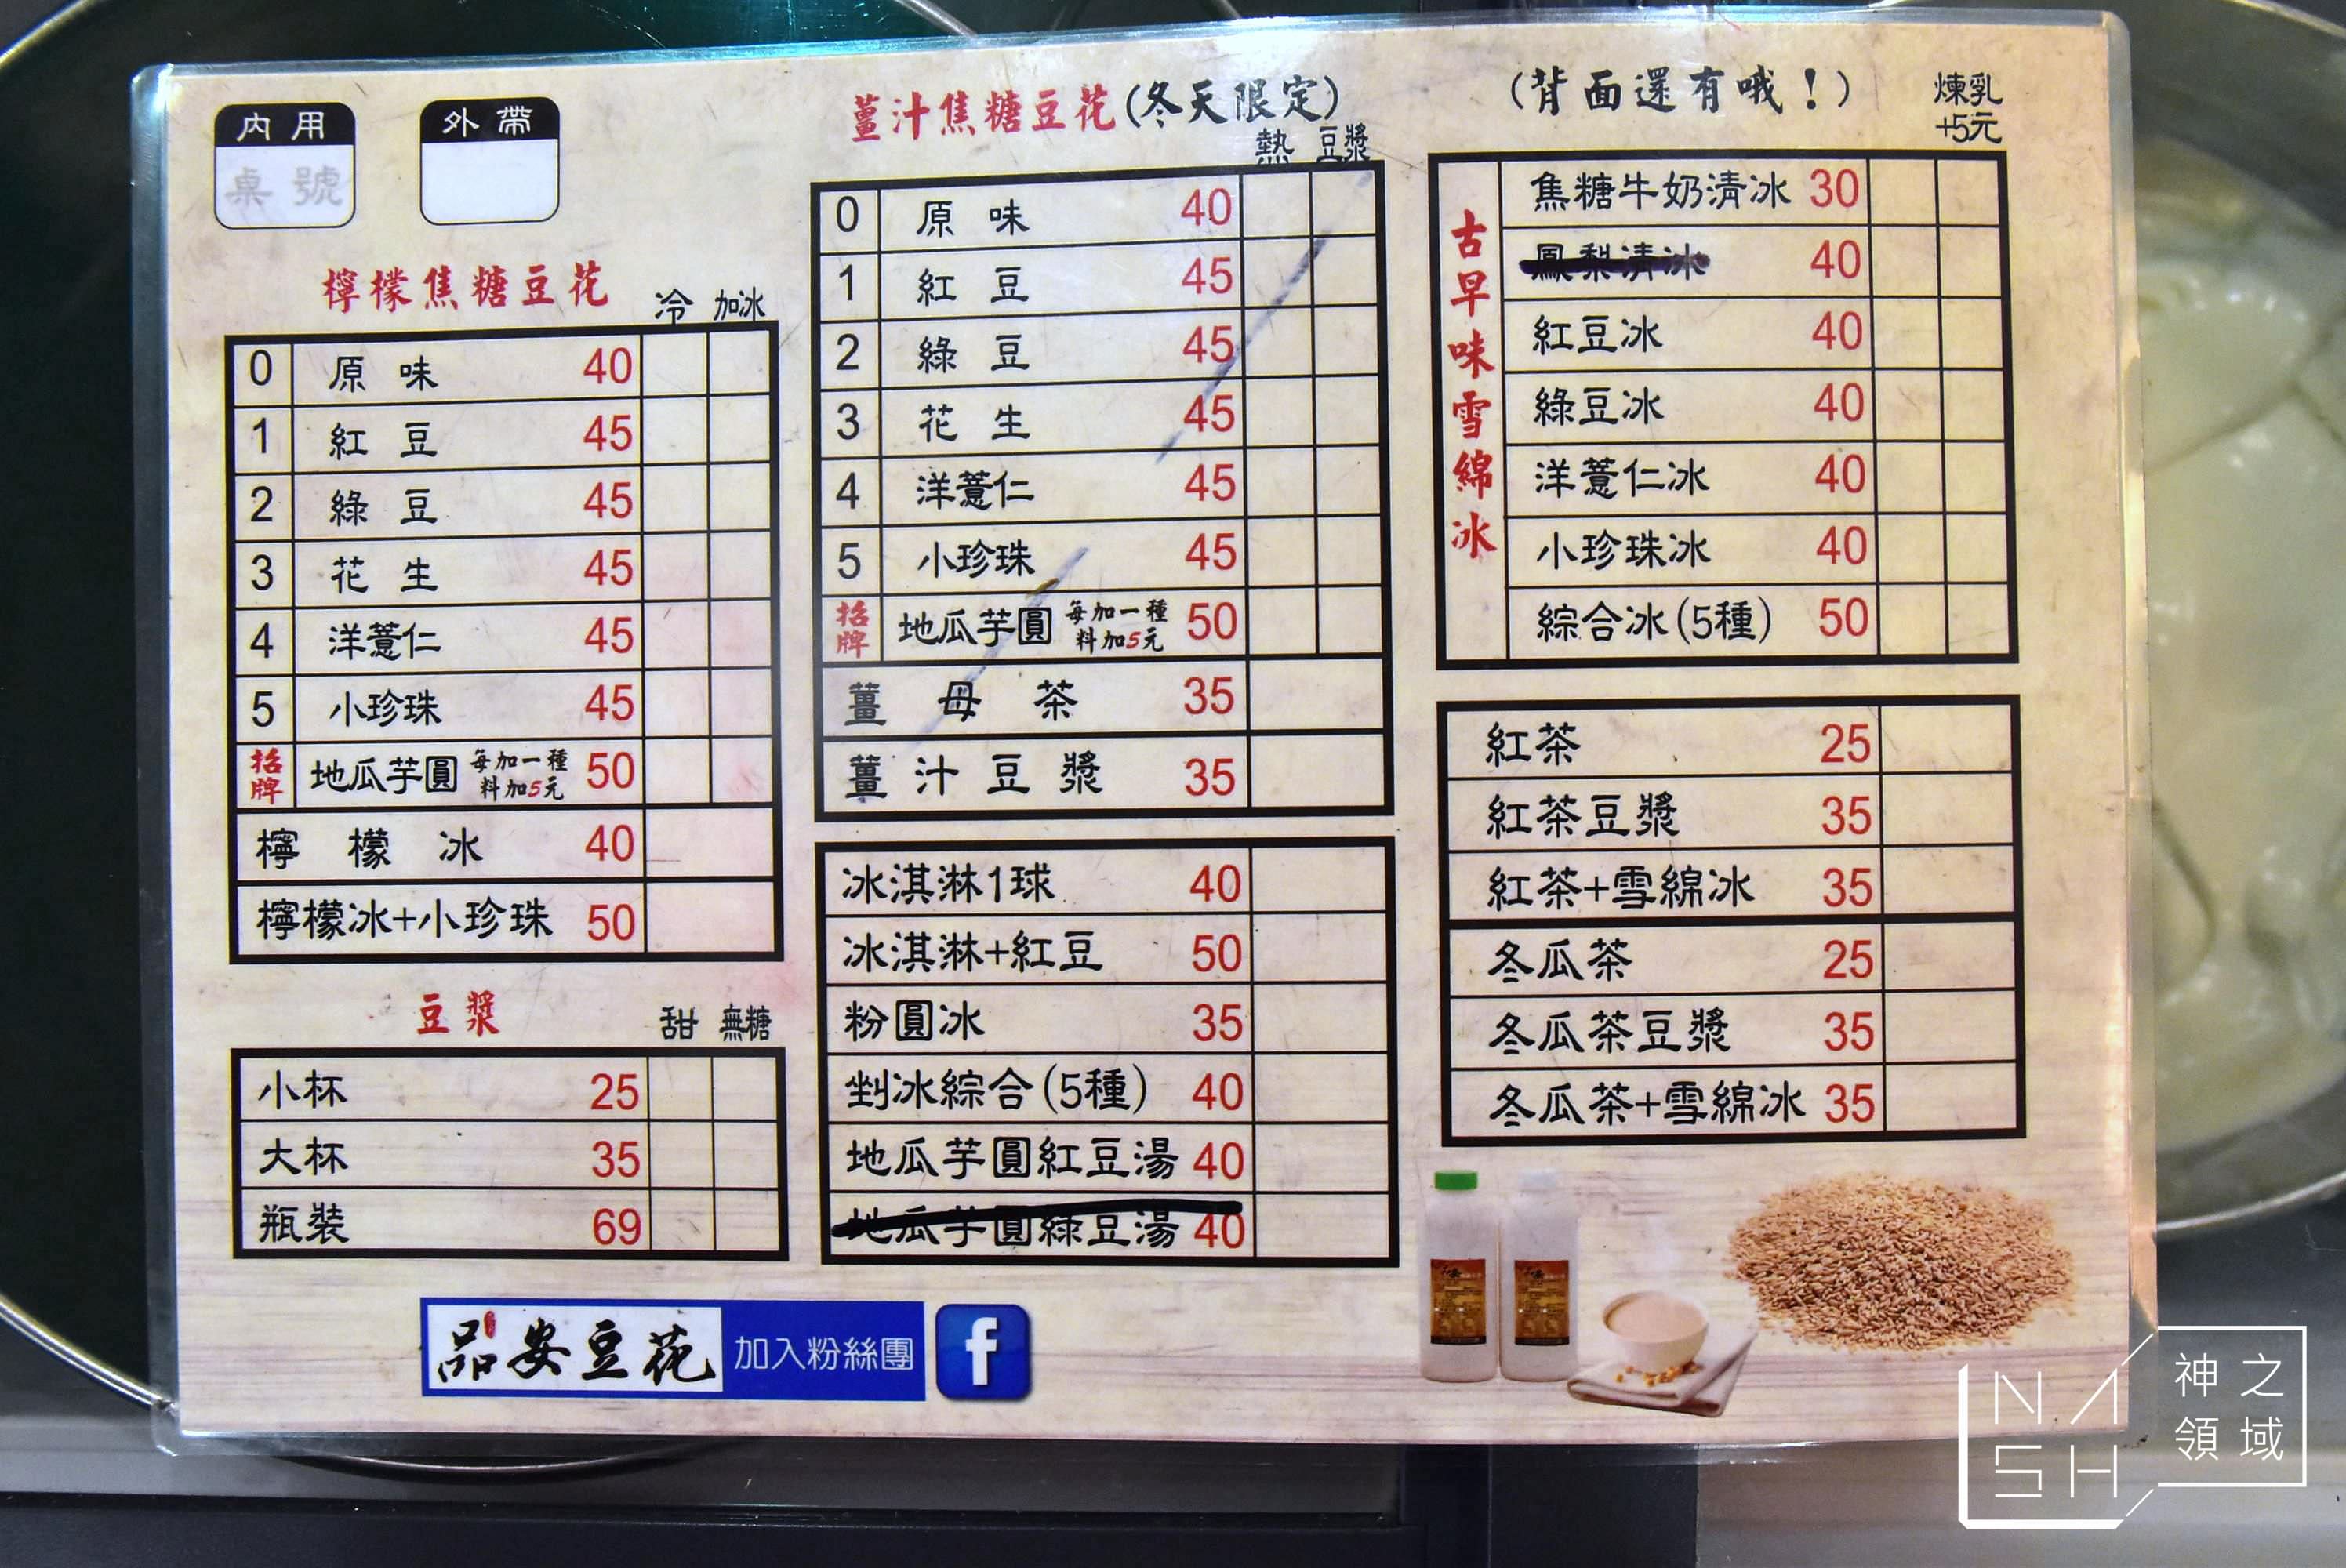 內用
桌號
外帶
檸檬焦糖豆花 冷 加冰
0 原味 40
1 紅豆 45
2 綠豆 45
3 花生 45
4 洋薏仁 45
5 小珍珠 45
招牌 地瓜芋圓 每加一種料加5元 50
檸檬冰 40
檸檬冰+小珍珠 50
豆漿 甜 無糖
小杯 25
大杯 35
瓶裝 69
薑汁焦糖豆花(冬天限定)
熱 豆漿
0 原味 40
1 紅豆 45
2 綠豆 45
3 花生 45
4 洋薏仁 45
5 小珍珠 45
招牌 地瓜芋圓 每加一種料加5元 50
薑母茶 35
薑汁豆漿 35
冰淇淋1球 40
冰淇淋+紅豆 50
粉圓冰 35
剉冰綜合(5種) 40
地瓜芋圓紅豆湯 40
地瓜芋圓綠豆湯 40
(背面還有哦！)
煉乳
+5元
古早味雪綿冰
焦糖牛奶清冰 30
鳳梨清冰 40
紅豆冰 40
綠豆冰 40
洋薏仁冰 40
小珍珠冰 40
綜合冰(5種) 50
紅茶 25
紅茶豆漿 35
紅茶+雪綿冰 35
冬瓜茶 25
冬瓜茶豆漿 35
冬瓜茶+雪綿冰 35
品安豆花 加入粉絲團 f
NASH
神之領域